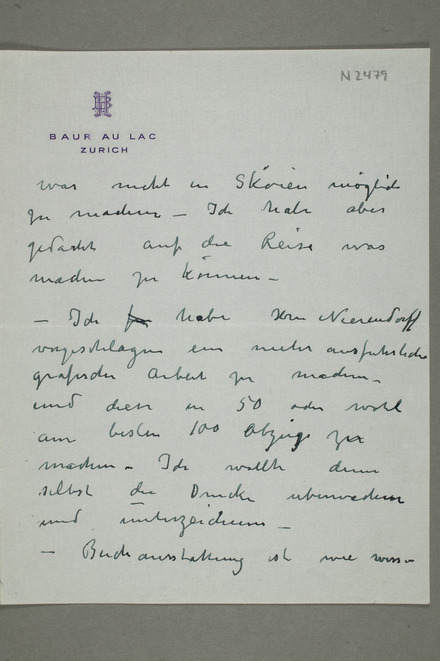 N2479
BAUR AU LAC
ZURICH
war nicht in Skoien möglich
zu machen – Ich habe aber
gedacht auf die Reise was
machen zu können –
– Ich habe Herrn Nierendorff
vorgeschlagen ein mehr ausführliche
grafische Arbeit zu machen –
und diese in 50 oder wohl
am besten 100 Abzüge zu
machen – Ich wollte dann
selbst die Drucke überwachen
und unterzeichnen –
– Buchausstattung ist wie